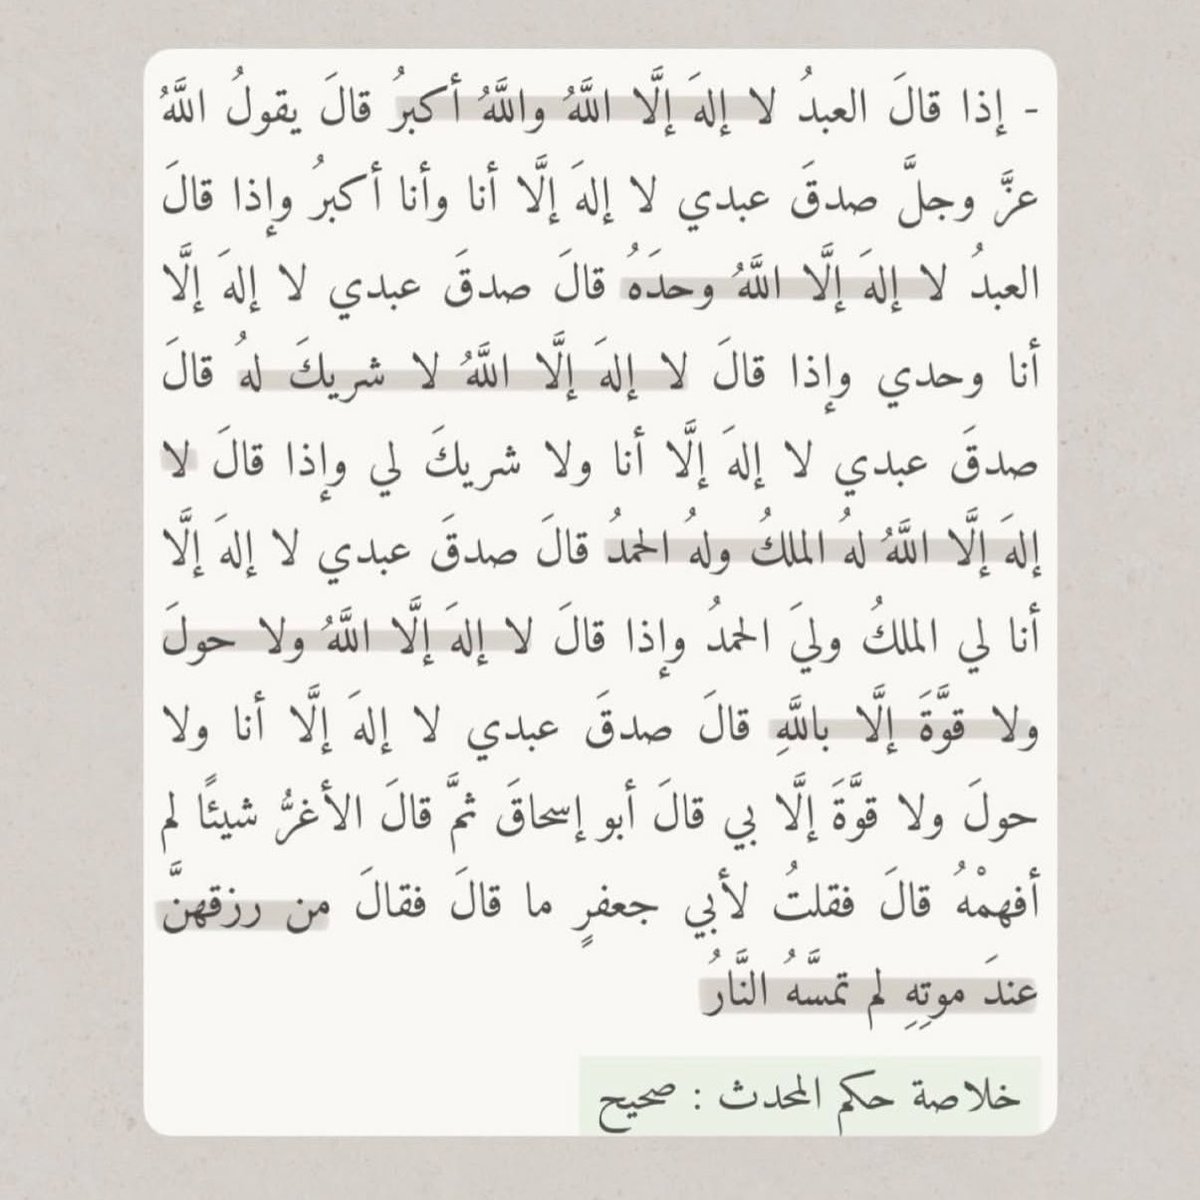 - إذا قالَ العبدُ لا إلهَ إلَّا اللَّهُ واللَّهُ أكبرُ قالَ يقولُ اللَّهُ
عزَّ وجلَّ صدقَ عبدي لا إلهَ إلَّا أنا وأنا أكبرُ وإذا قالَ
العبدُ لا إلهَ إلَّا اللَّهُ وحدَهُ قالَ صدقَ عبدي لا إلهَ إلَّا
أنا وحدي وإذا قالَ لا إلهَ إلَّا اللَّهُ لا شريكَ لهُ قالَ
صدقَ عبدي لا إلهَ إلَّا أنا ولا شريكَ لي وإذا قالَ لا
إلهَ إلَّا اللَّهُ لهُ الملكُ ولهُ الحمدُ قالَ صدقَ عبدي لا إلهَ إلَّا
أنا لي الملكُ وليَ الحمدُ وإذا قالَ لا إلهَ إلَّا اللَّهُ ولا حولَ
ولا قوَّةَ إلَّا باللَّهِ قالَ صدقَ عبدي لا إلهَ إلَّا أنا ولا
حولَ ولا قوَّةَ إلَّا بي قالَ أبو إسحاقَ ثمَّ قالَ الأغرُّ شيئًا لم
أفهمْهُ قالَ فقلتُ لأبي جعفرٍ ما قالَ فقالَ من رزقهنَّ
عندَ موتِهِ لم تمسَّهُ النَّارُ
خلاصة حكم المحدث : صحيح